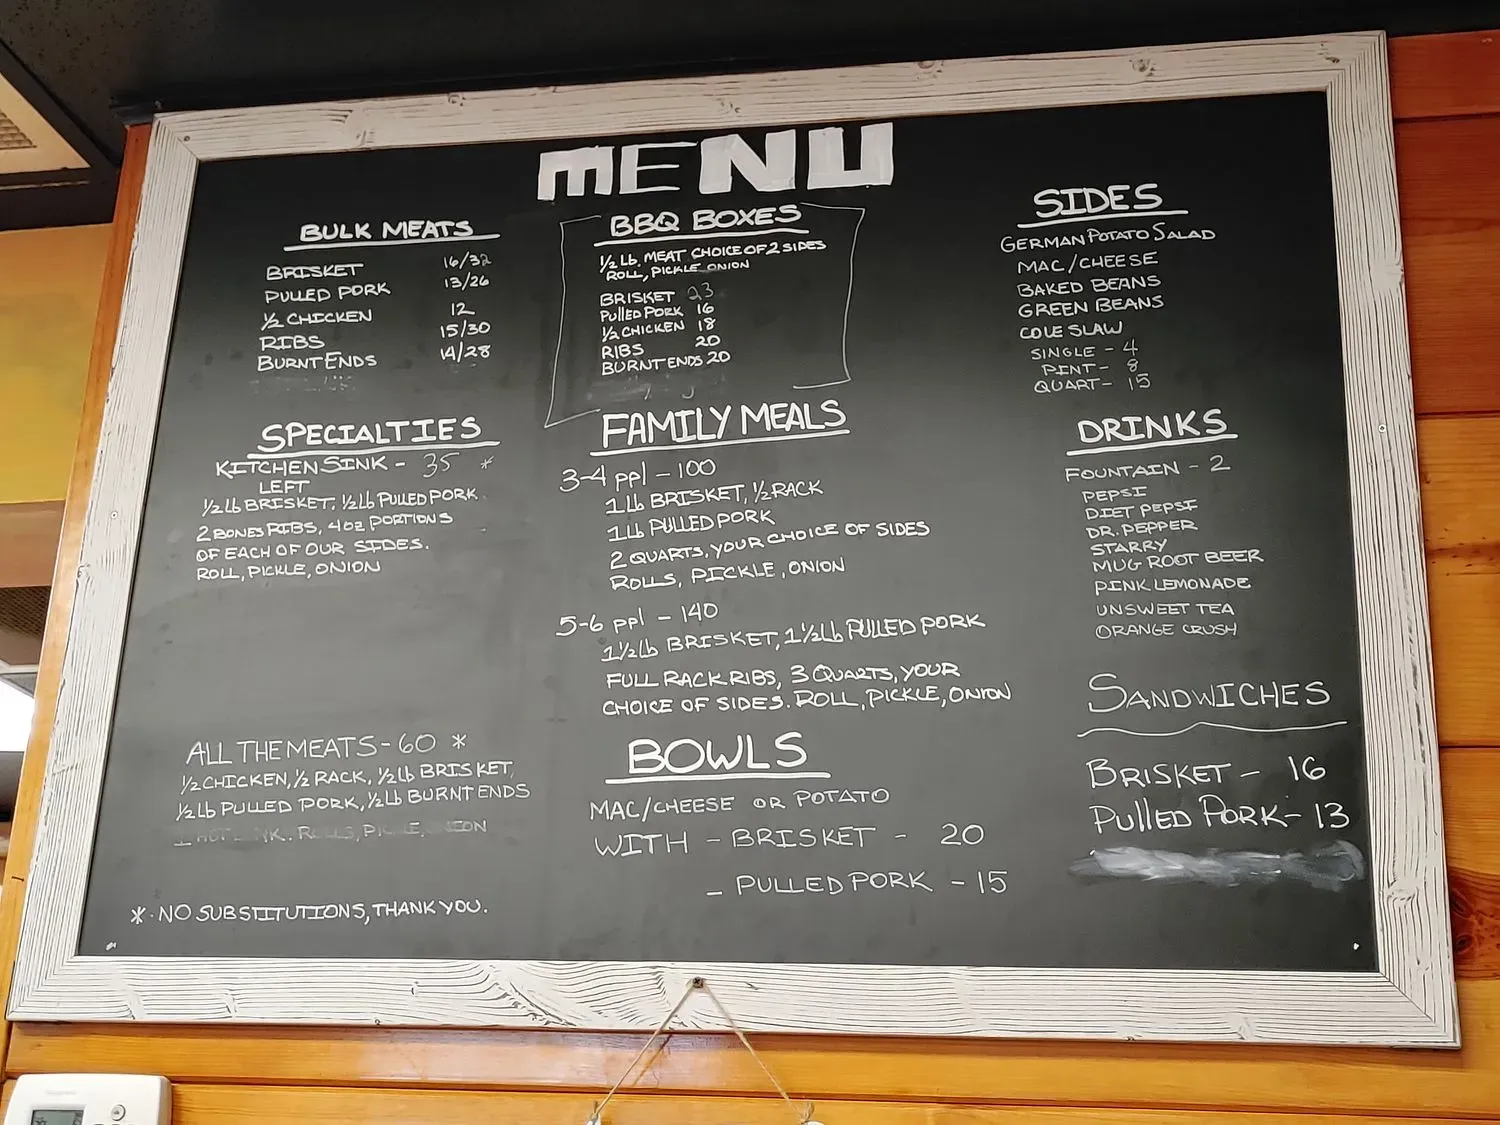 MENU
BULK MEATS
BRISKET 16/32
PULLED PORK 13/26
1/2 CHICKEN 12
RIBS 15/30
BURNT ENDS 14/28
SPECIALTIES
KITCHEN SINK - 35 *
LEFT
1/2 lb BRISKET, 1/2 lb PULLED PORK
2 BONES RIBS, 4oz PORTIONS
OF EACH OF OUR SIDES.
ROLL, PICKLE, ONION
ALL THE MEATS - 60 *
1/2 CHICKEN, 1/2 RACK, 1/2 lb BRISKET,
1/2 lb PULLED PORK, 1/2 lb BURNT ENDS
ROLLS, PICKLE, ONION
* - NO SUBSTITUTIONS, THANK YOU.
BBQ BOXES
1/2 Lb. MEAT CHOICE OF 2 SIDES
ROLL, PICKLE, ONION
BRISKET 23
PULLED PORK 16
1/2 CHICKEN 18
RIBS 20
BURNT ENDS 20
FAMILY MEALS
3-4 ppl - 100
1 lb BRISKET, 1/2 RACK
1 lb PULLED PORK
2 QUARTS, YOUR CHOICE OF SIDES
ROLLS, PICKLE, ONION
5-6 ppl - 140
1 1/2 Lb BRISKET, 1 1/2 Lb PULLED PORK
FULL RACK RIBS, 3 QUARTS, YOUR
CHOICE OF SIDES. ROLL, PICKLE, ONION
BOWLS
MAC/CHEESE OR POTATO
WITH - BRISKET - 20
- PULLED PORK - 15
SIDES
GERMAN POTATO SALAD
MAC/CHEESE
BAKED BEANS
GREEN BEANS
COLE SLAW
SINGLE - 4
PINT - 8
QUART - 15
DRINKS
FOUNTAIN - 2
PEPSI
DIET PEPSI
DR. PEPPER
STARRY
MUG ROOT BEER
PINK LEMONADE
UNSWEET TEA
ORANGE CRUSH
SANDWICHES
BRISKET - 16
PULLED PORK - 13